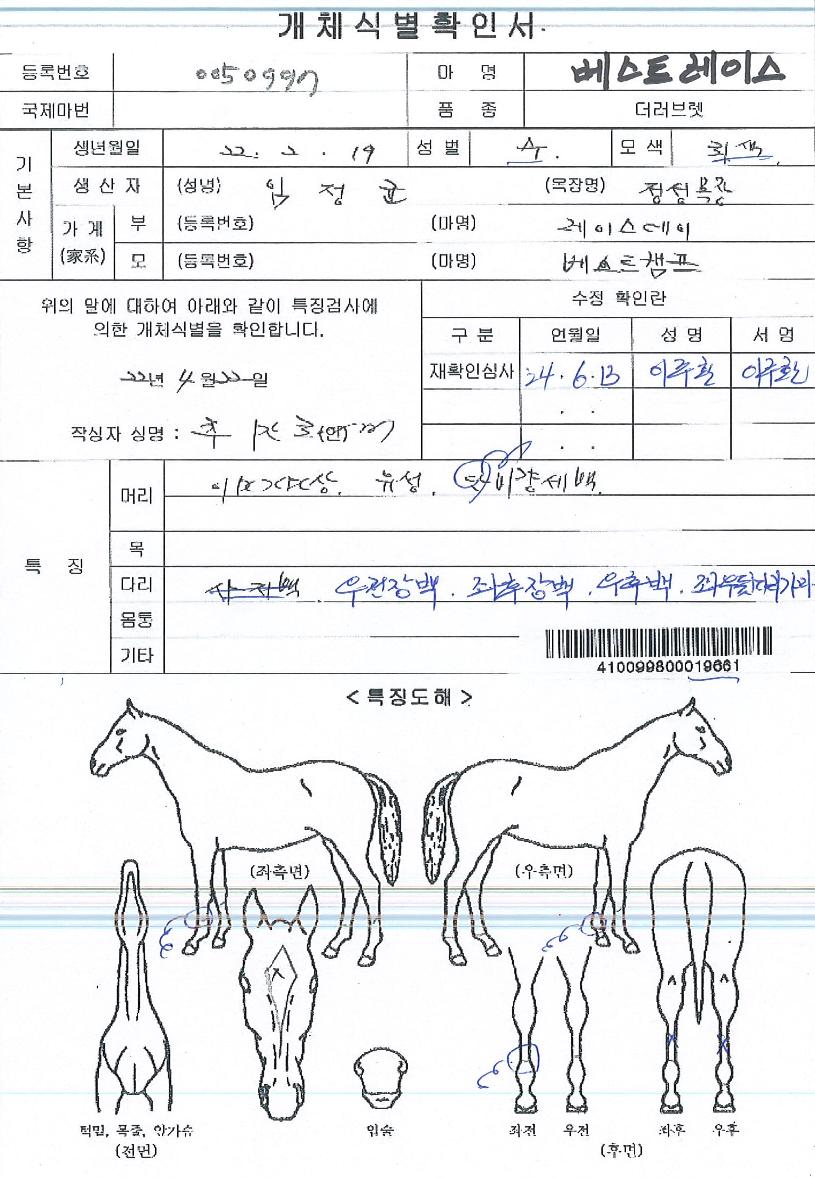 개체식별확인서.
등록번호 0050997 마 명 베스트레이스
국제마번 품 종 더러브렛
기본사항
생년월일 22. 2. 19 성별 수. 모색 회색.
생산자 (성명) 임정균 (목장명) 정성목장
가계 (家系) 부 (등록번호) (마명) 레이스데이
모 (등록번호) (마명) 베스트챔프
위의 말에 대하여 아래와 같이 특징검사에
의한 개체식별을 확인합니다.
22년 4월 22일
작성자 성명 : (인)
수정 확인란
구분 연월일 성명 서명
재확인심사 24. 6. 13 이주환 이주환
. .
. .
특 징
머리 유성. 비량세백.
목
다리 우전장백. 좌후장백. 우후백.
몸통
기타
410099800019661
< 특징도해 >
(좌측면) (우측면)
턱밑, 목줄, 앞가슴
(전면)
입술
좌전 우전 좌후 우후
(후면)